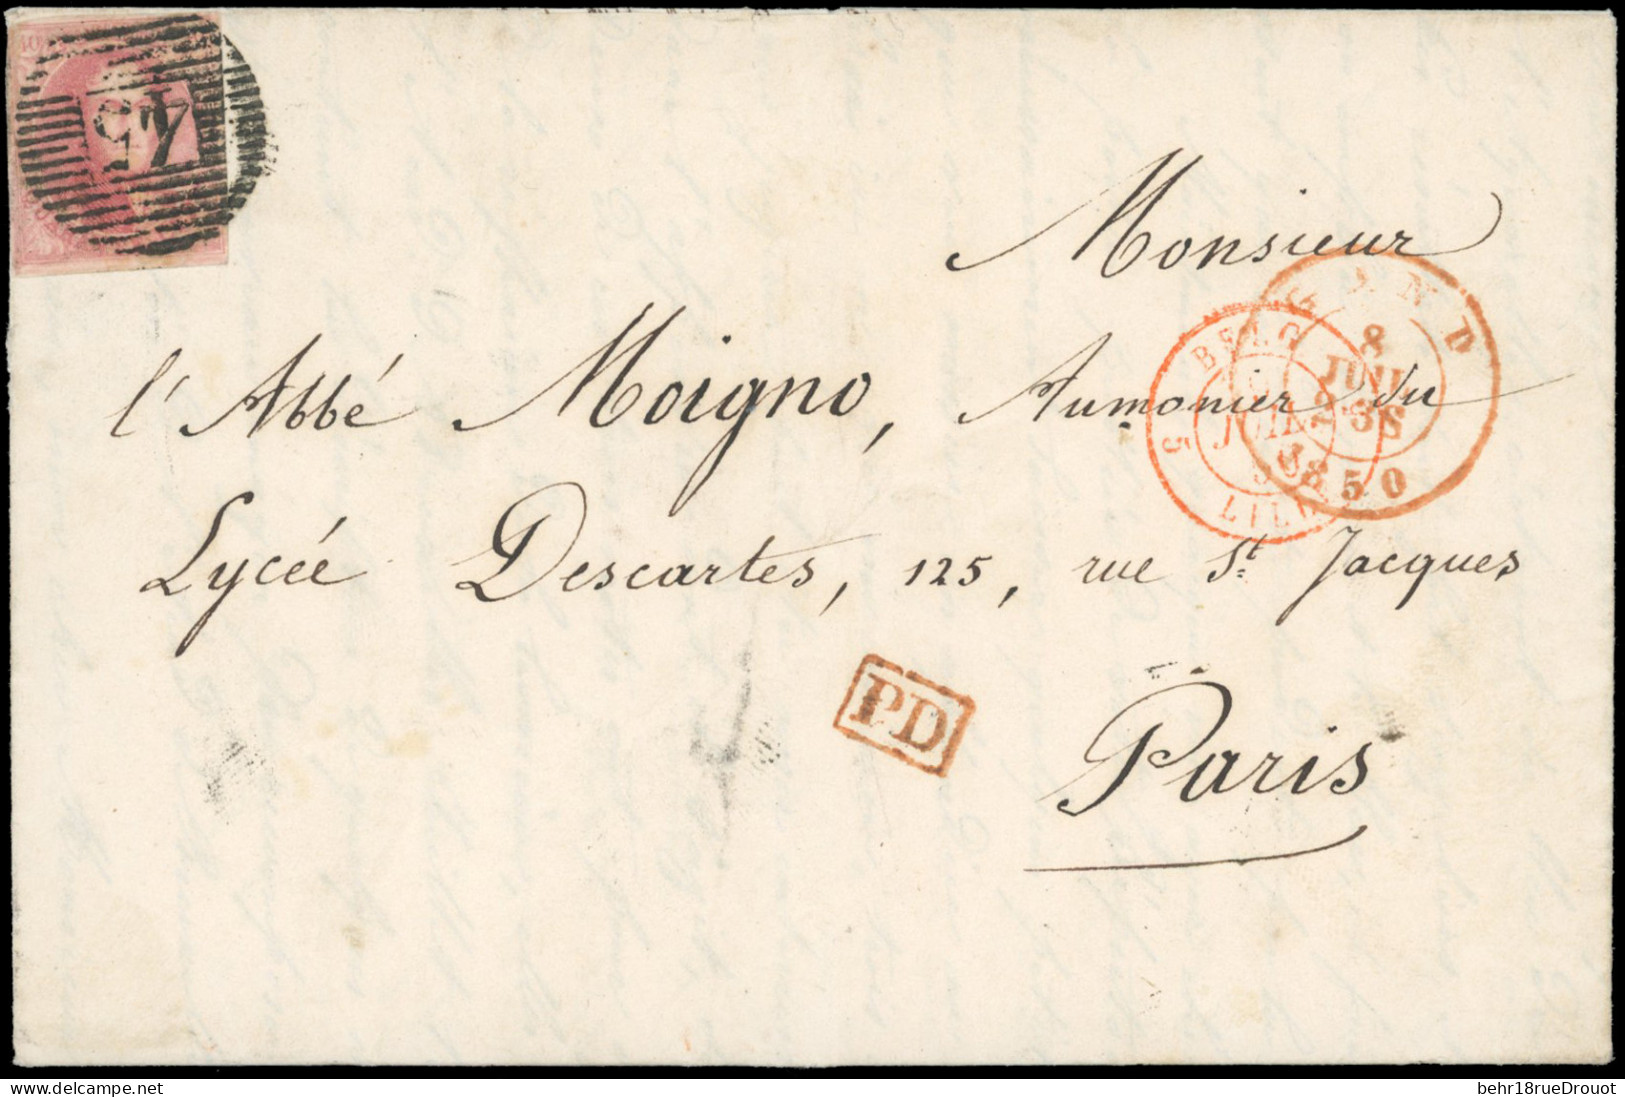 45
Monsieur
l'Abbé Moigno, Aumonier du
Lycée Descartes, 125, rue St. Jacques
Paris
PD
GAND
8
JUIL
1850
5 BELG.
JUIL
LILLE
Delcampe.net
behr18rueDrouot